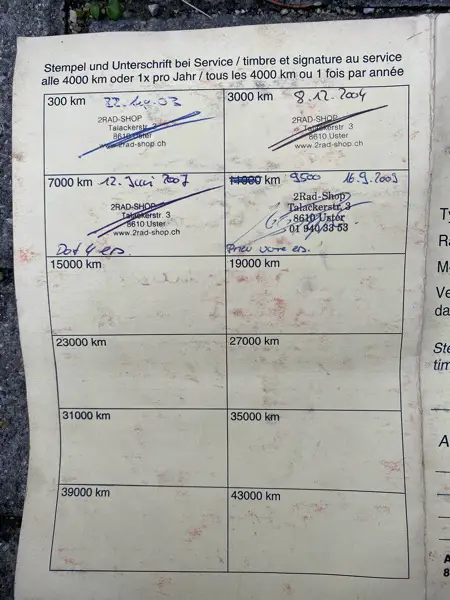 Stempel und Unterschrift bei Service / timbre et signature au service
alle 4000 km oder 1x pro Jahr / tous les 4000 km ou 1 fois par année
300 km 03
2RAD-SHOP
Talackerstr. 3
8610 Uster
www.2rad-shop.ch
3000 km 8.12.2004
2RAD-SHOP
Talackerstr. 3
8610 Uster
www.2rad-shop.ch
7000 km 12. Juni 2007
2RAD-SHOP
Talackerstr. 3
8610 Uster
www.2rad-shop.ch
Dot 4 ers.
11000 km 9500 16.9.2009
2Rad-Shop
Talackerstr. 3
8610 Uster
01 940 33 53
ers.
15000 km
19000 km
23000 km
27000 km
31000 km
35000 km
39000 km
43000 km
Ty
Ve
da
Ste
tim
A
A
8